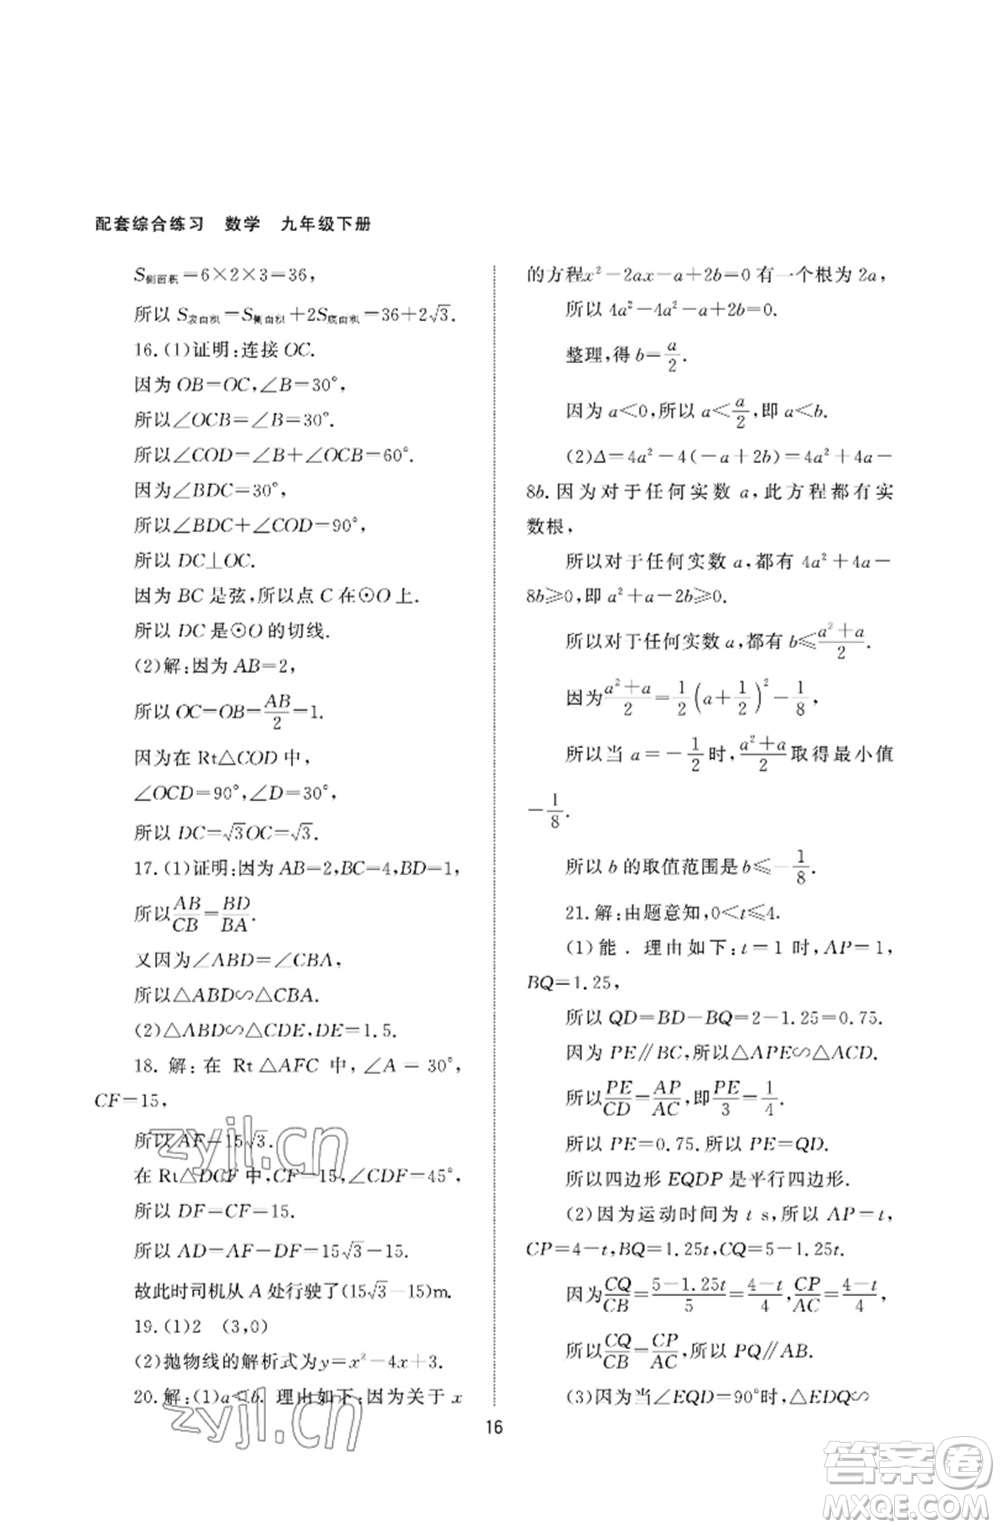 配套综合练习 数学 九年级下册
S侧面积=6×2×3=36,
所以 S表面积=S侧面积+2S底面积=36+2√3.
16.(1)证明:连接 OC.
因为 OB=OC,∠B=30°,
所以∠OCB=∠B=30°.
所以∠COD=∠B+∠OCB=60°.
因为∠BDC=30°,
所以∠BDC+∠COD=90°.
所以 DC⊥OC.
因为 BC 是弦,所以点 C 在⊙O 上.
所以 DC 是⊙O 的切线.
(2)解:因为 AB=2,
所以 OC=OB=AB/2=1.
因为在 Rt△COD 中,
∠OCD=90°,∠D=30°,
所以 DC=√3OC=√3.
17.(1)证明:因为 AB=2,BC=4,BD=1,
所以AB/CB=BD/BA.
又因为∠ABD=∠CBA,
所以△ABD∽△CBA.
(2)△ABD∽△CDE,DE=1.5.
18. 解: 在 Rt △AFC 中, ∠A = 30°,
CF=15,
所以 AF=15√3.
在 Rt△DCF 中,CF=15,∠CDF=45°,
所以 DF=CF=15.
所以 AD=AF-DF=15√3-15.
故此时司机从 A 处行驶了(15√3-15)m.
19.(1)2 (3,0)
(2)抛物线的解析式为y=x²-4x+3.
20.解:(1)a<b. 理由如下:因为关于 x
的方程x²-2ax-a+2b=0 有一个根为 2a,
所以 4a²-4a²-a+2b=0.
整理,得 b=a/2.
因为 a<0,所以 a<a/2,即 a<b.
(2)Δ=4a²-4(-a+2b)=4a²+4a-
8b. 因为对于任何实数 a,此方程都有实
数根,
所以对于任何实数 a,都有 4a²+4a-
8b≥0,即 a²+a-2b≥0.
所以对于任何实数 a,都有 b≤(a²+a)/2.
因为(a²+a)/2=1/2(a+1/2)²-1/8,
所以当 a=-1/2时,(a²+a)/2取得最小值
-1/8.
所以 b 的取值范围是 b≤-1/8.
21.解:由题意知,0<t≤4.
(1)能. 理由如下:t=1 时,AP=1,
BQ=1.25,
所以 QD=BD-BQ=2-1.25=0.75.
因为 PE∥BC,所以△APE∽△ACD.
所以PE/CD=AP/AC,即PE/3=1/4.
所以 PE=0.75. 所以 PE=QD.
所以四边形 EQDP 是平行四边形.
(2)因为运动时间为 t s,所以 AP=t,
CP=4-t,BQ=1.25t,CQ=5-1.25t.
因为CQ/CB=(5-1.25t)/5=(4-t)/4,CP/AC=(4-t)/4,
所以CQ/CB=CP/AC.所以 PQ∥AB.
(3)因为当∠EQD=90°时,△EDQ∽
16
zyjl.cn
zyjl.cn
答案圈
MXQE.COM